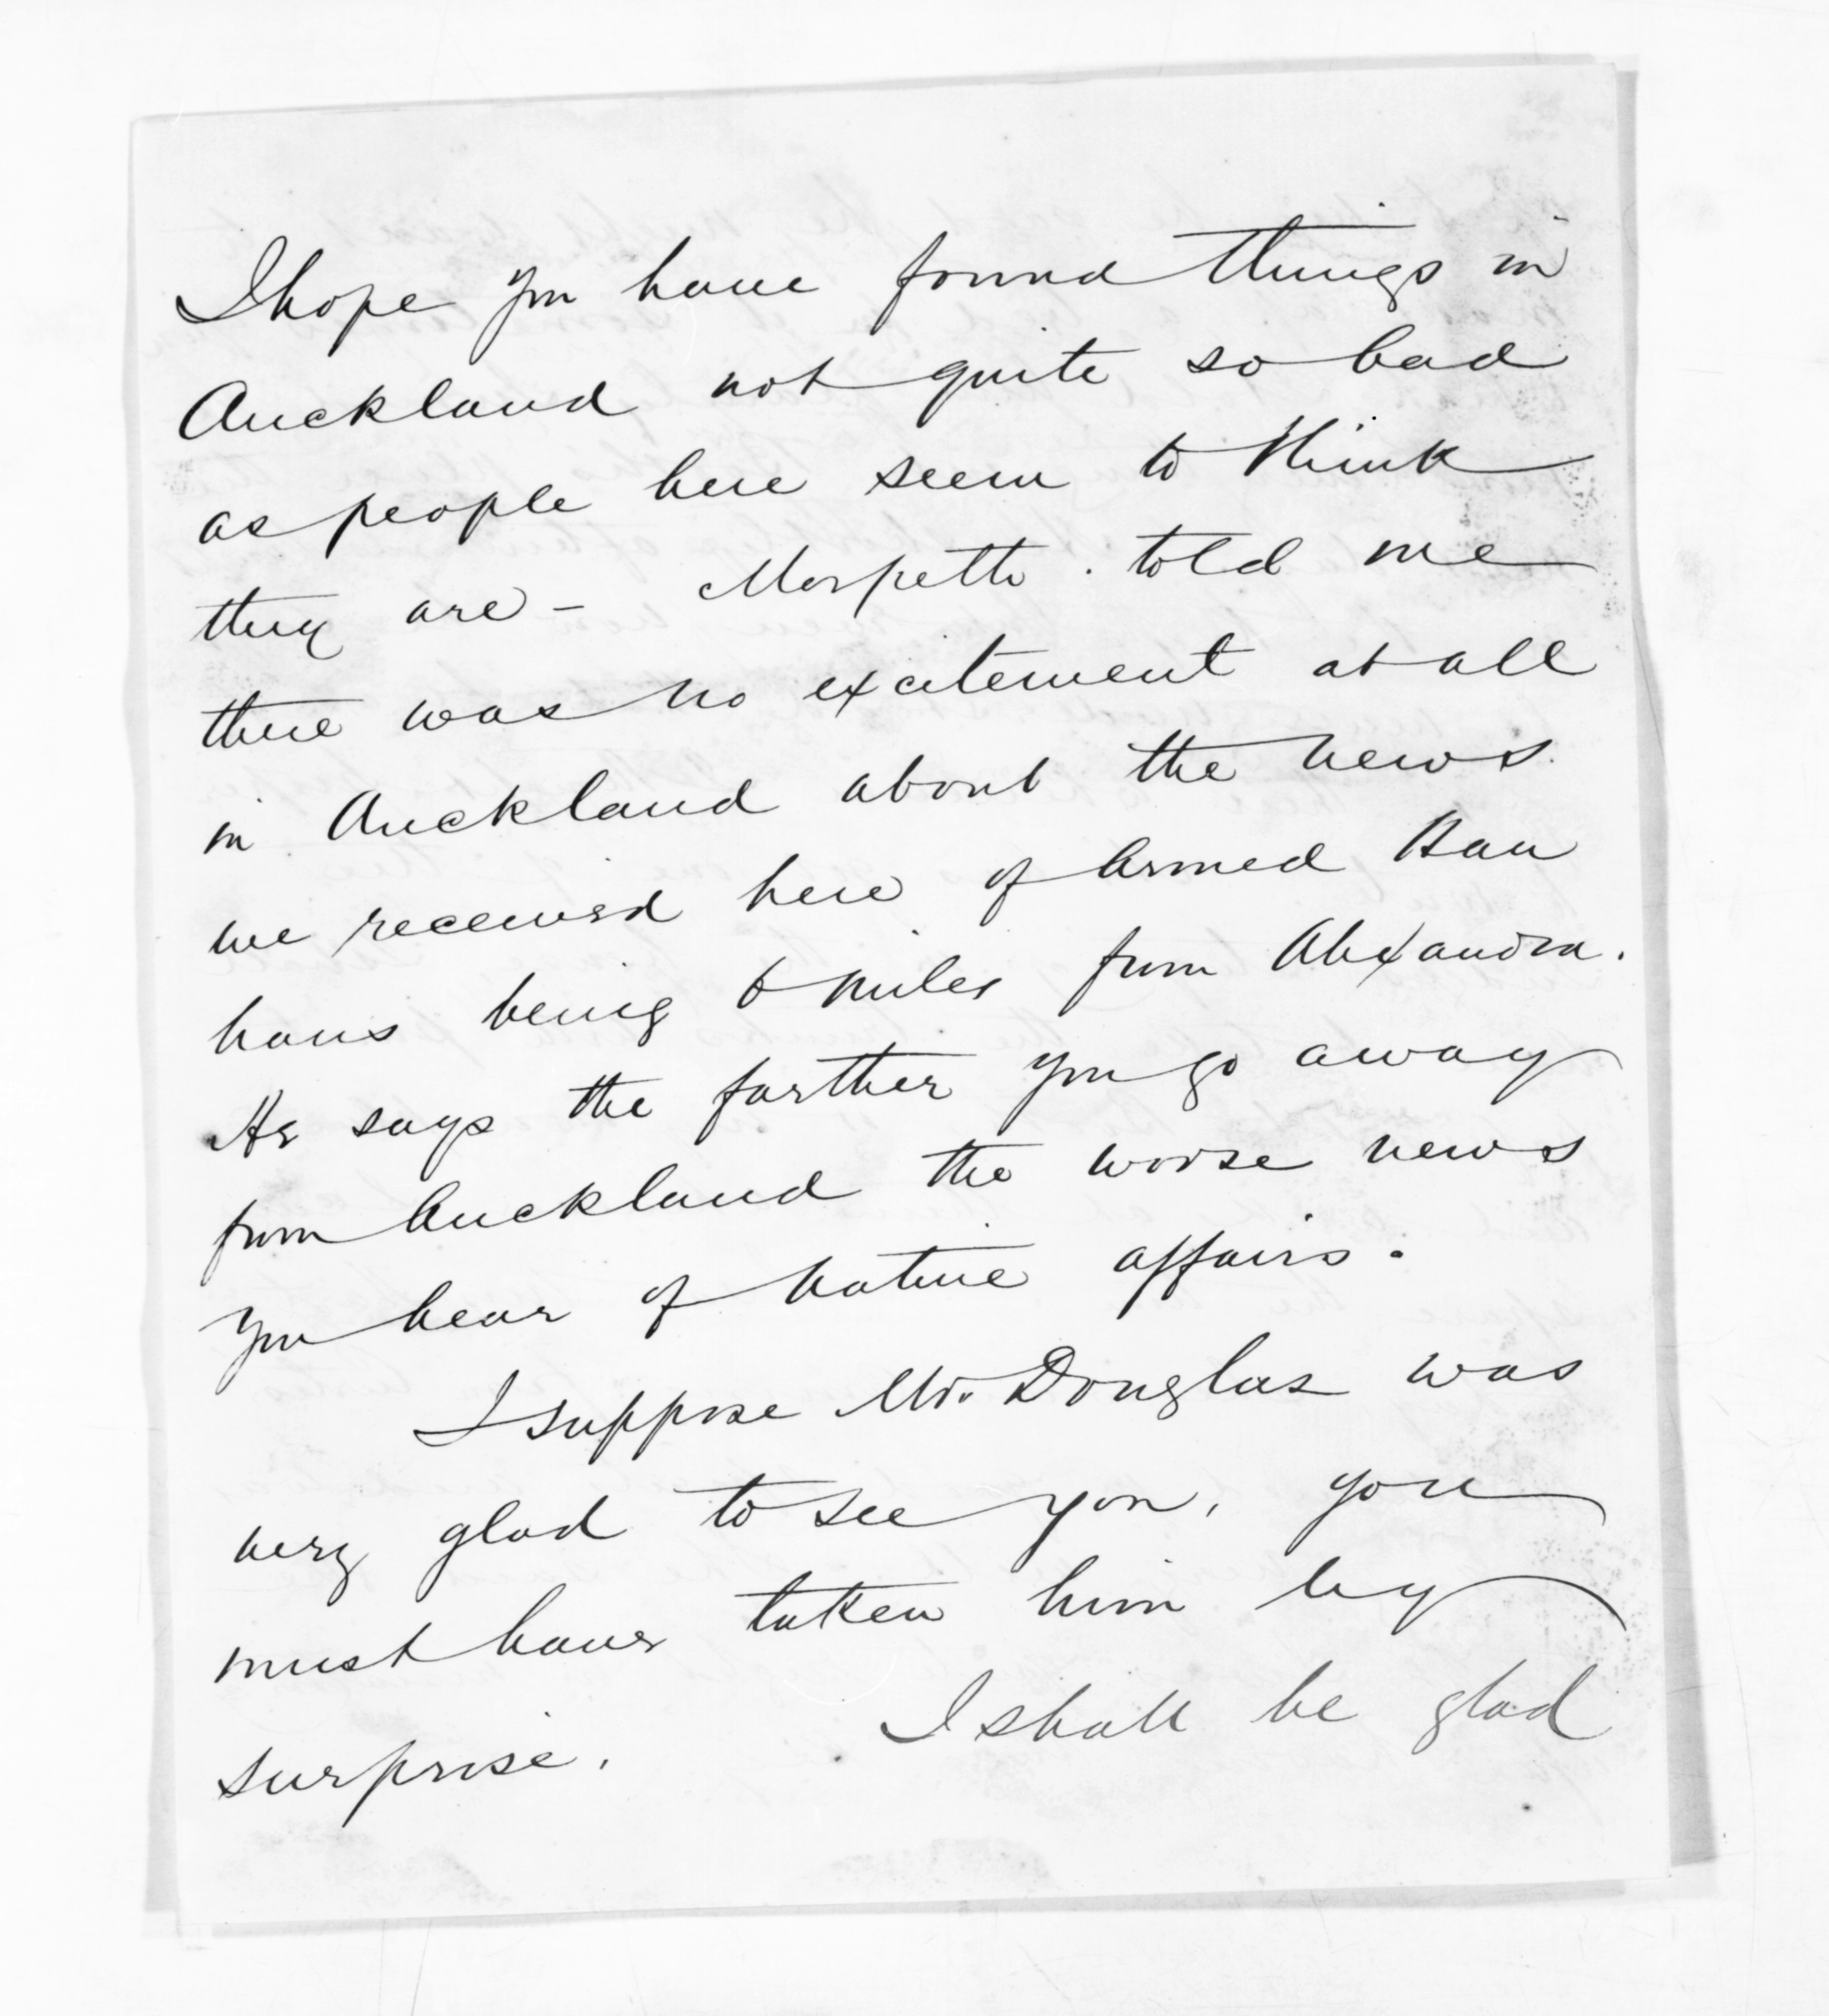 I hope you have found things in
Auckland not quite so bad
as people here seem to think
they are - Morpeth told me
there was no excitement at all
in Auckland about the news
we received here of armed Hau
haus being 6 miles from Alexandra.
He says the farther you go away
from Auckland the worse news
you hear of Native affairs.
I suppose Mr. Douglas was
very glad to see you, you
must have taken him by
surprise. I shall be glad